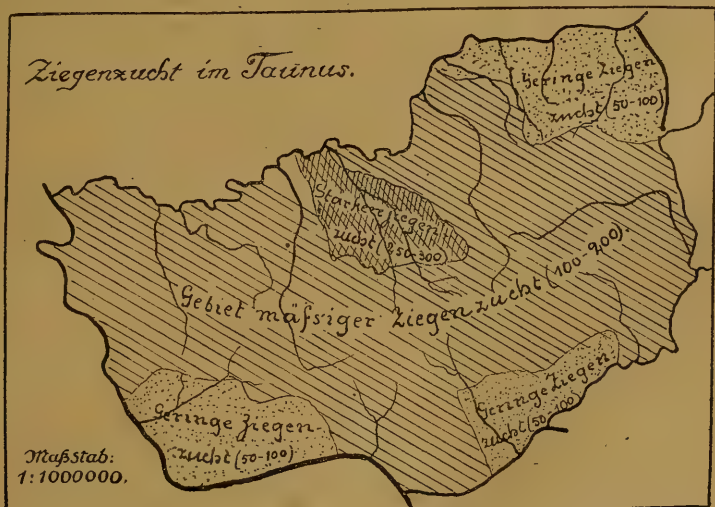 Ziegenzucht im Taunus.
Geringe Ziegen
zucht (50-100)
Starke Ziegen
zucht (250-300)
Gebiet mäßsiger Ziegenzucht (100-200).
Geringe Ziegen
zucht (50-100)
Geringe Ziegen
zucht (50-100)
Maßstab:
1:1000000.